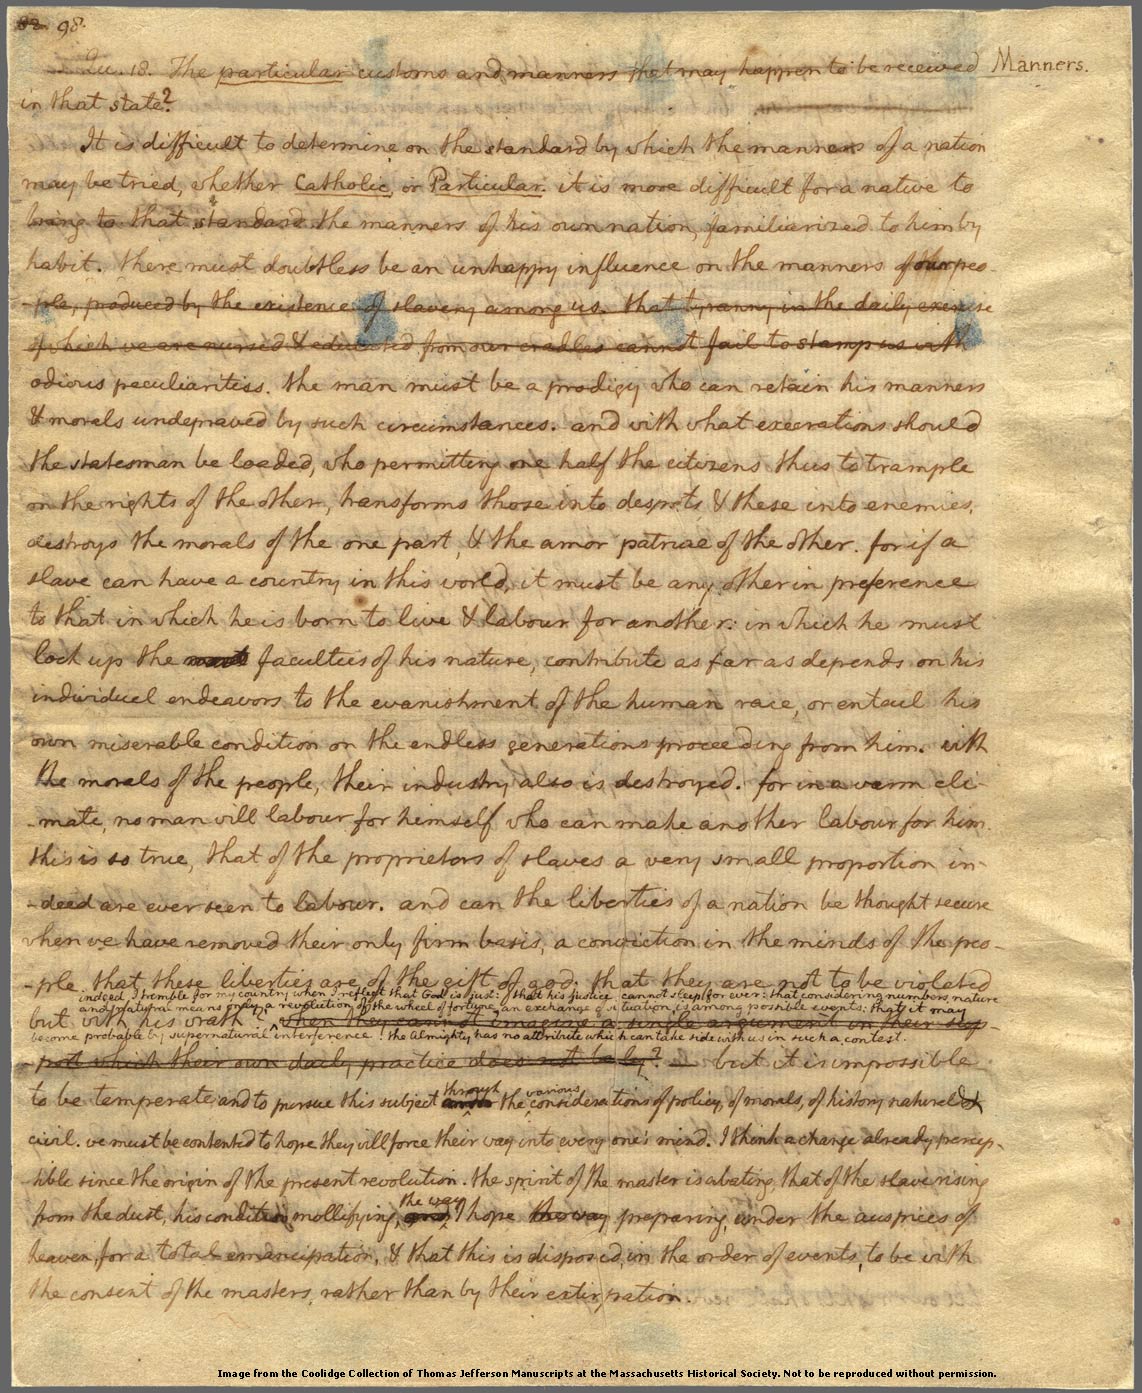 82. 98.
Qu. 18. The particular customs and manners that may happen to be received Manners.
in that state?
It is difficult to determine on the standard by which the manners of a nation
may be tried, whether Catholic, or Particular. it is more difficult for a native to
bring to that standard the manners of his own nation, familiarized to him by
habit. there must doubtless be an unhappy influence on the manners of our peo-
-ple, produced by the existence of slavery among us. that tyranny in the daily exercise
of which we are nursed & educated from our cradles cannot fail to stamp us with
odious peculiarities. the man must be a prodigy who can retain his manners
& morals undepraved by such circumstances. and with what execrations should
the statesman be loaded, who permitting one half the citizens thus to trample
on the rights of the other, transforms those into despots, & these into enemies,
destroys the morals of the one part, & the amor patriae of the other. for if a
slave can have a country in this world, it must be any other in preference
to that in which he is born to live & labour for another: in which he must
lock up the faculties of his nature, contribute as far as depends on his
individuel endeavors to the evanishment of the human race, or entail his
own miserable condition on the endless generations proceeding from him. with
the morals of the people, their industry also is destroyed. for in a warm cli-
-mate, no man will labour for himself who can make another labour for him.
this is so true, that of the proprietors of slaves a very small proportion in-
-deed are ever seen to labour. and can the liberties of a nation be thought secure
when we have removed their only firm basis, a conviction in the minds of the peo-
-ple that these liberties are of the gift of god? that they are not to be violated
indeed I tremble for my country when I reflect that God is just: that his justice cannot sleep for ever: that considering numbers, nature
and natural means only, a revolution of the wheel of fortune, an exchange of situation, is among possible events: that it may
but with his wrath? when they cannot imagine a single argument in their sup-
become probable by supernatural interference! the Almighty has no attribute which can take side with us in such a contest.
-port which their own daily practice does not bely? but it is impossible
to be temperate and to pursue this subject through the various considerations of policy, of morals, of history natural &
civil. we must be contented to hope they will force their way into every one's mind. I think a change already percep-
-tible since the origin of the present revolution. the spirit of the master is abating, that of the slave rising
from the dust, his condition mollifying, and the way I hope the way preparing, under the auspices of
heaven, for a total emancipation, & that this is disposed, in the order of events, to be with
the consent of the masters, rather than by their extirpation.
Image from the Coolidge Collection of Thomas Jefferson Manuscripts at the Massachusetts Historical Society. Not to be reproduced without permission.